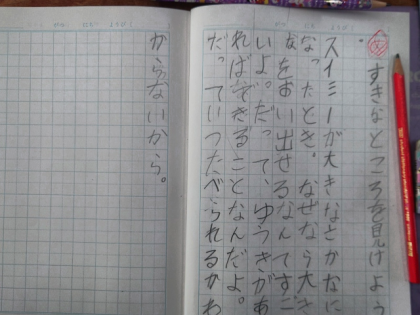 め すきなところを見けよう
スイミーが大きなさかなに
なったとき。なぜなら大き
なをおい出せるなんてすご
いよ。だって、ゆうきがあ
ればできることなんだよ。
だっていつたべられるかわ
からないから。